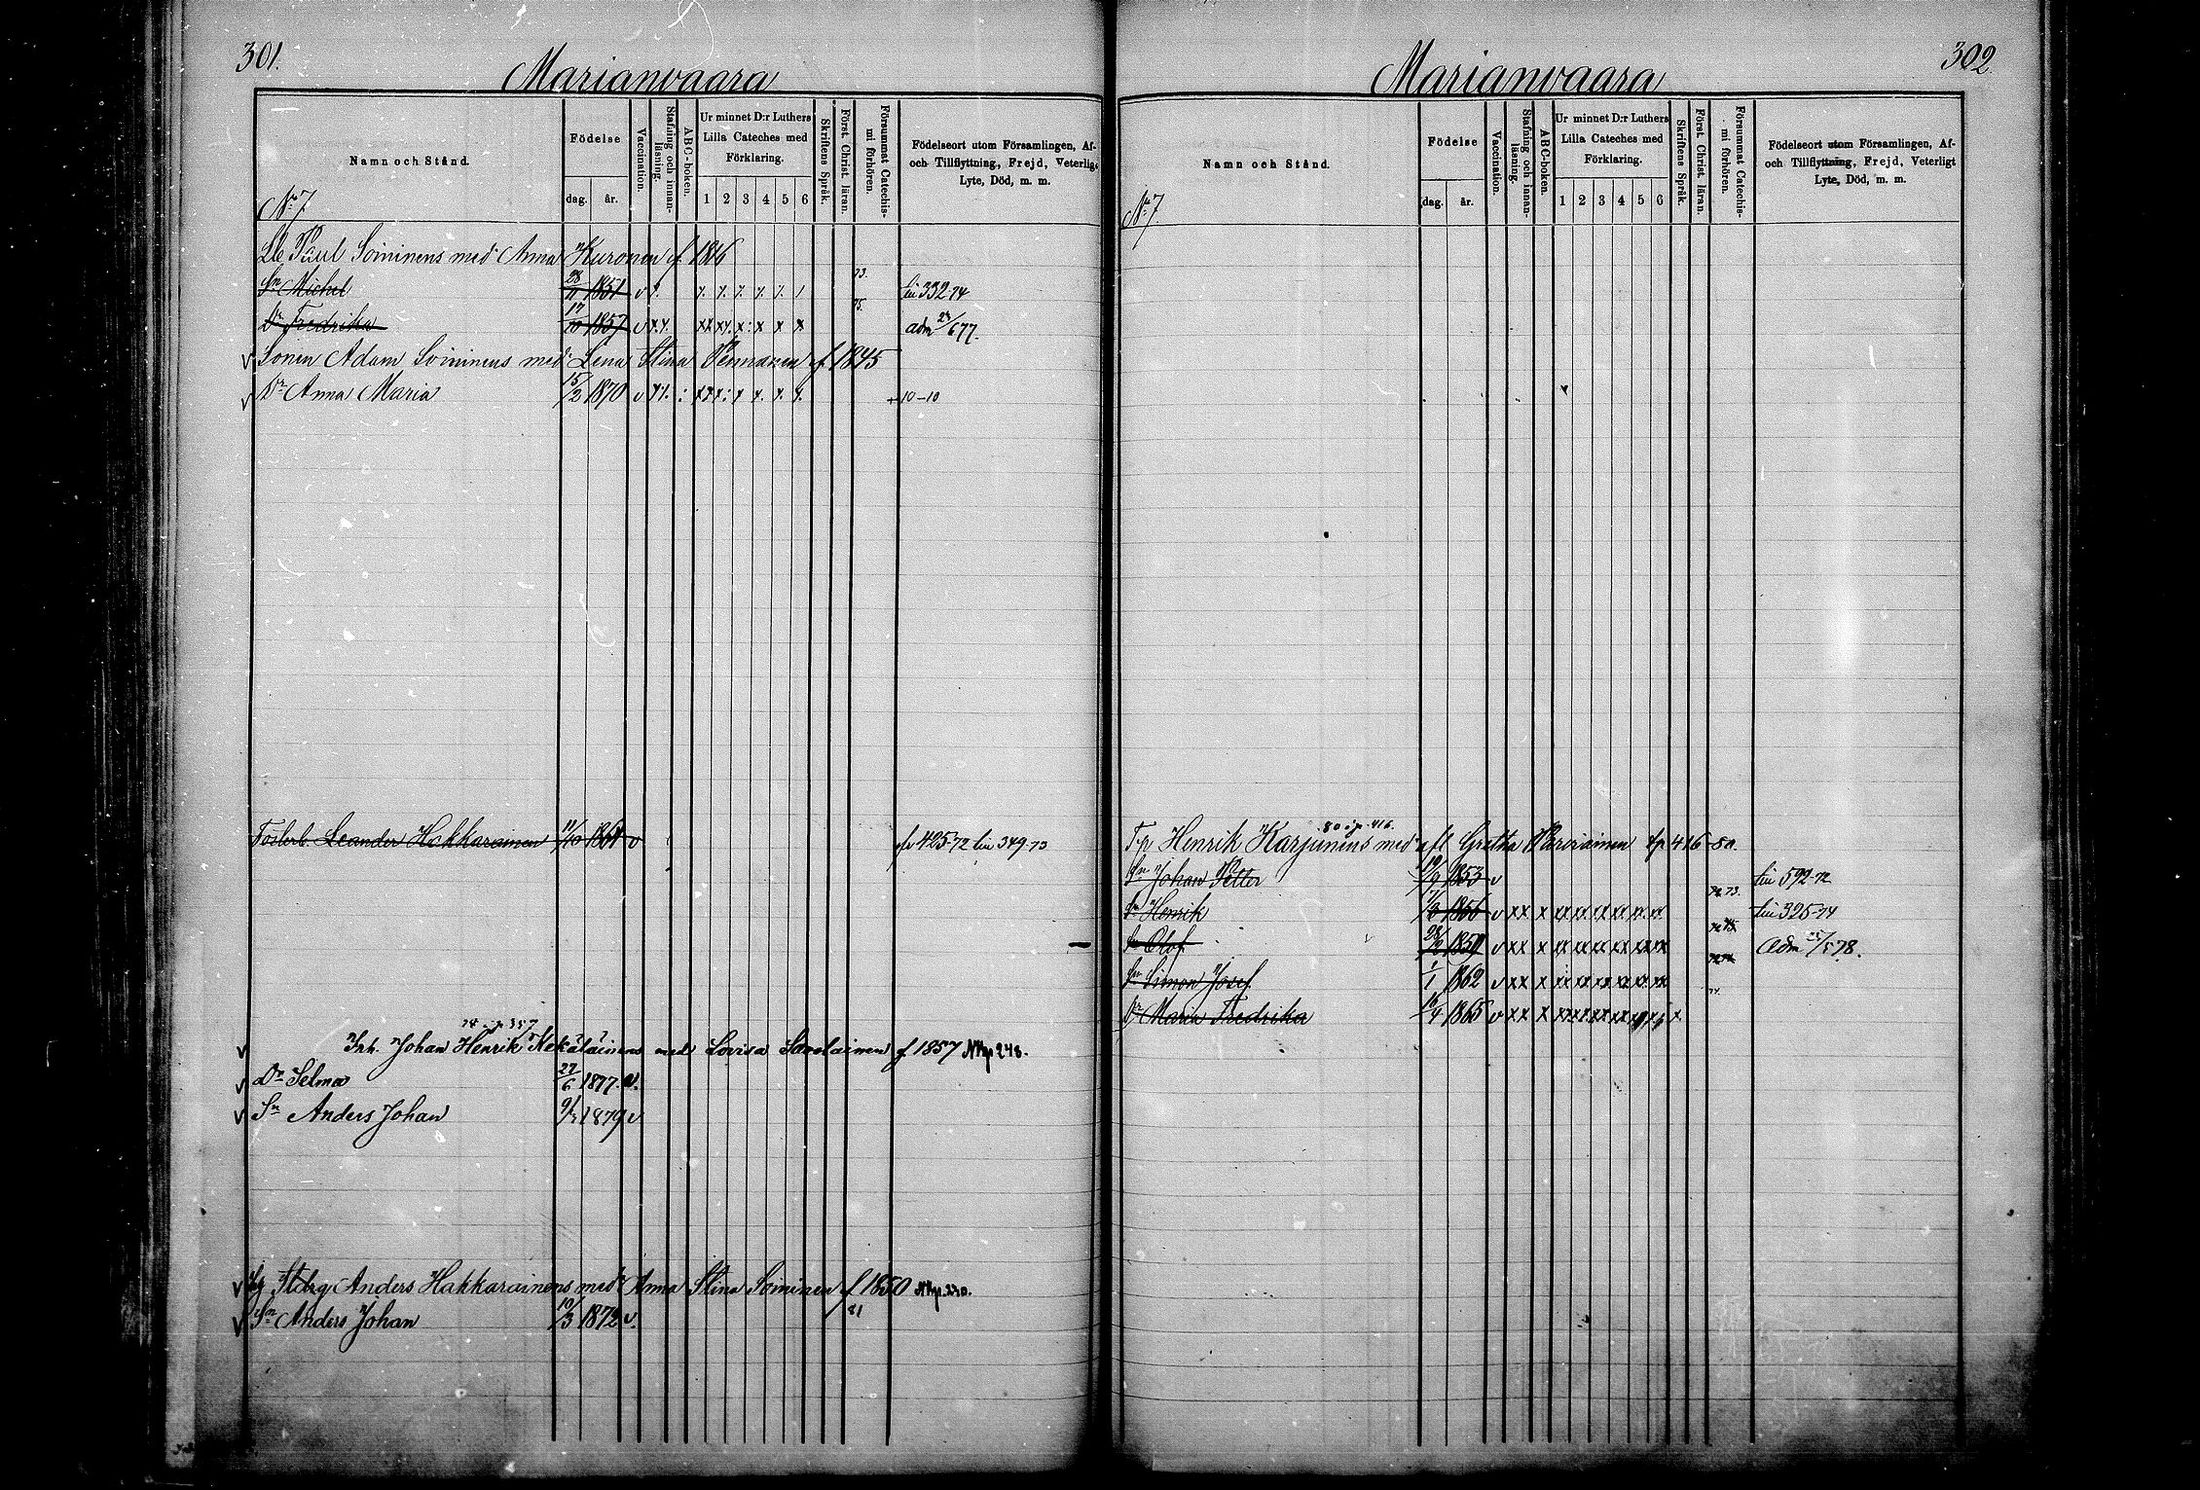 301.
Marianvaara
Namn och Stånd.
Födelse
dag. år.
Vaccination.
Stafning och innanläsning.
ABC-boken.
Ur minnet D:r Luthers
Lilla Cateches med
Förklaring.
1 2 3 4 5 6
Skriftens Språk.
Först. Christ. läran.
Försummat Catechismi förhören.
Födelseort utom Församlingen, Af-
och Tillflyttning, Frejd, Veterligt
Lyte, Död, m. m.
No 7
Paul Soininens med Anna Kuronen f. 1816
73.
Sn Michel 28/11 1851 v 332-74
75.
Dr Fredrika 17/10 1857 v adm 677.
v Sonen Adam Soininens med Lena Stina Pennanen f. 1845
v Dr Anna Maria 15/2 1870 v 10-10
Leander Hakkarainen 11/10 1861 v 425-72 349-73
357
v Inh. Johan Henrik Kekäläinens med Lovisa Savolainen f. 1857 248.
v Dr Selma 22/6 1877. v.
v Sn Anders Johan 1879 v
v Anders Hakkarainens med Anna Stina Soininen f. 1850 230.
v Sn Anders Johan 10/3 1872 v. 81
302.
Marianvaara
Namn och Stånd.
Födelse
dag. år.
Vaccination.
Stafning och innanläsning.
ABC-boken.
Ur minnet D:r Luthers
Lilla Cateches med
Förklaring.
1 2 3 4 5 6
Skriftens Språk.
Först. Christ. läran.
Försummat Catechismi förhören.
Födelseort utom Församlingen, Af-
och Tillflyttning, Frejd, Veterligt
Lyte, Död, m. m.
No 7
80 416.
Henrik Karjunins med Gretha 416-80.
Sn Johan Petter 1853 v 592-72
Sn Henrik 1856 v xx x xx xx xx xx xx xx 325-74
Sn Olof 1859 v xx x xx xx xx xx xx xx Adm 578.
Sn Simon Josef 1/1 1862 v xx x xx xx xx xx xx xx
Dr Maria Fredrika 16/4 1865 v xx x